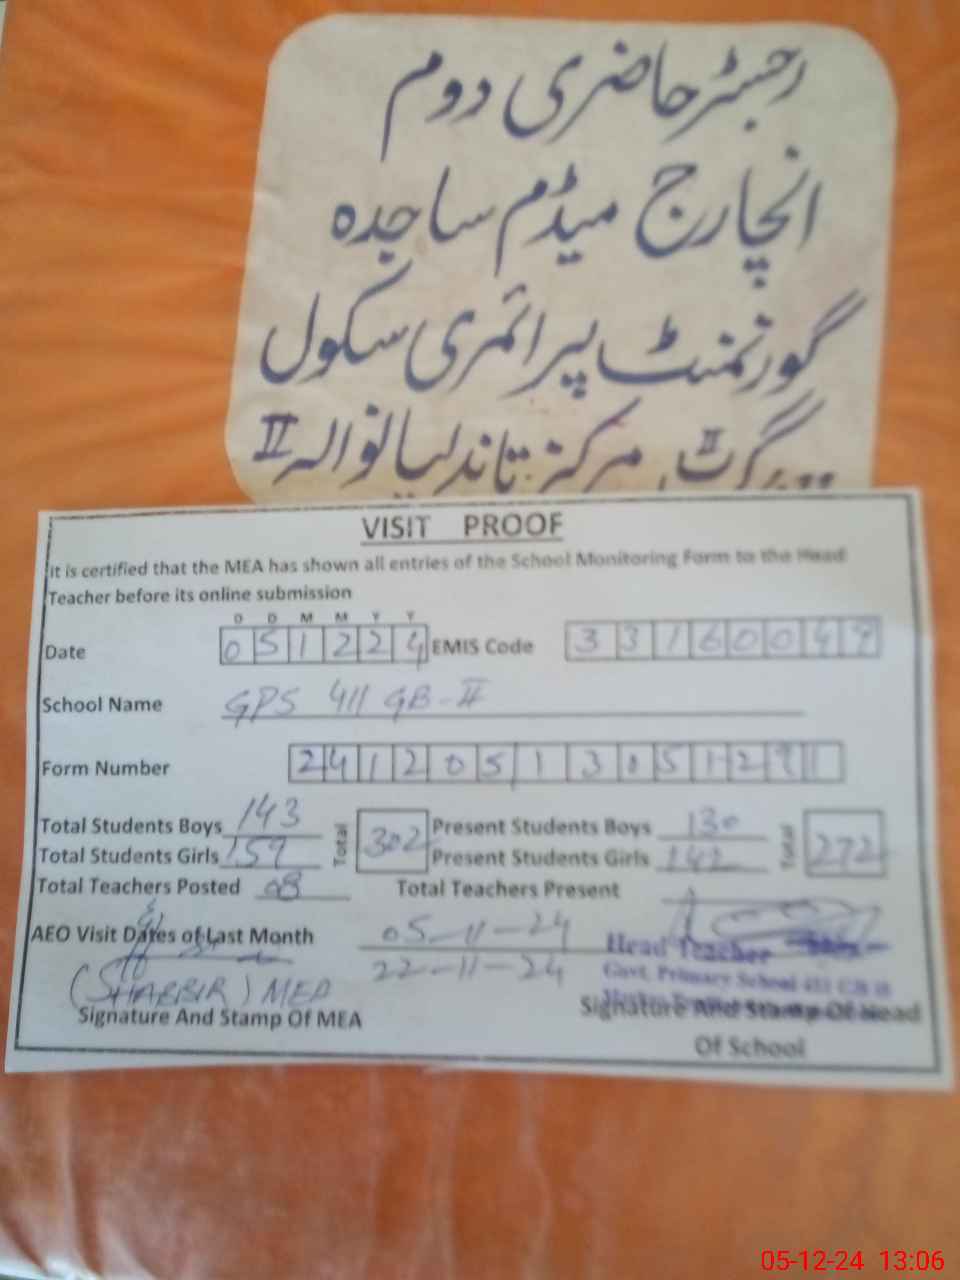 رجسٹر حاضری دوم
انچارج میڈم ساجدہ
گورنمنٹ پرائمری سکول
II مرکز تاندلیانوالہ II
VISIT PROOF
It is certified that the MEA has shown all entries of the School Monitoring Form to the Head
Teacher before its online submission
D D M M Y Y
Date 0 5 1 2 2 4 EMIS Code 3 3 1 6 0 0 4 9
School Name GPS 411 GB-II
Form Number 2 4 1 2 0 5 1 3 0 5 1 2 9 1
Total Students Boys 143 Total 302 Present Students Boys 130 Total 272
Total Students Girls 159 Present Students Girls 142
Total Teachers Posted 08 Total Teachers Present
AEO Visit Dates of Last Month 05-11-24
22-11-24
Head Teacher
Govt. Primary School 411 GB II
(SHABBIR) MEA
Signature And Stamp Of MEA Signature And Stamp Of Head
Of School
05-12-24 13:06